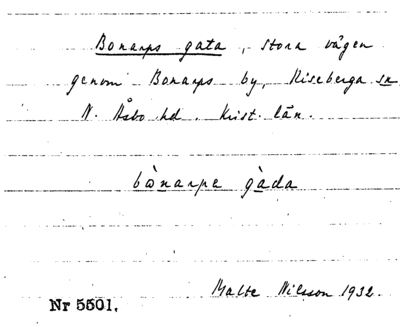 Bonarps gata, stora vägen
genom Bonarps by, Riseberga sn
N. Åsbo hd. Krist. län.
bònarpa gàda
Malte Nilsson 1932.
Nr 5501.